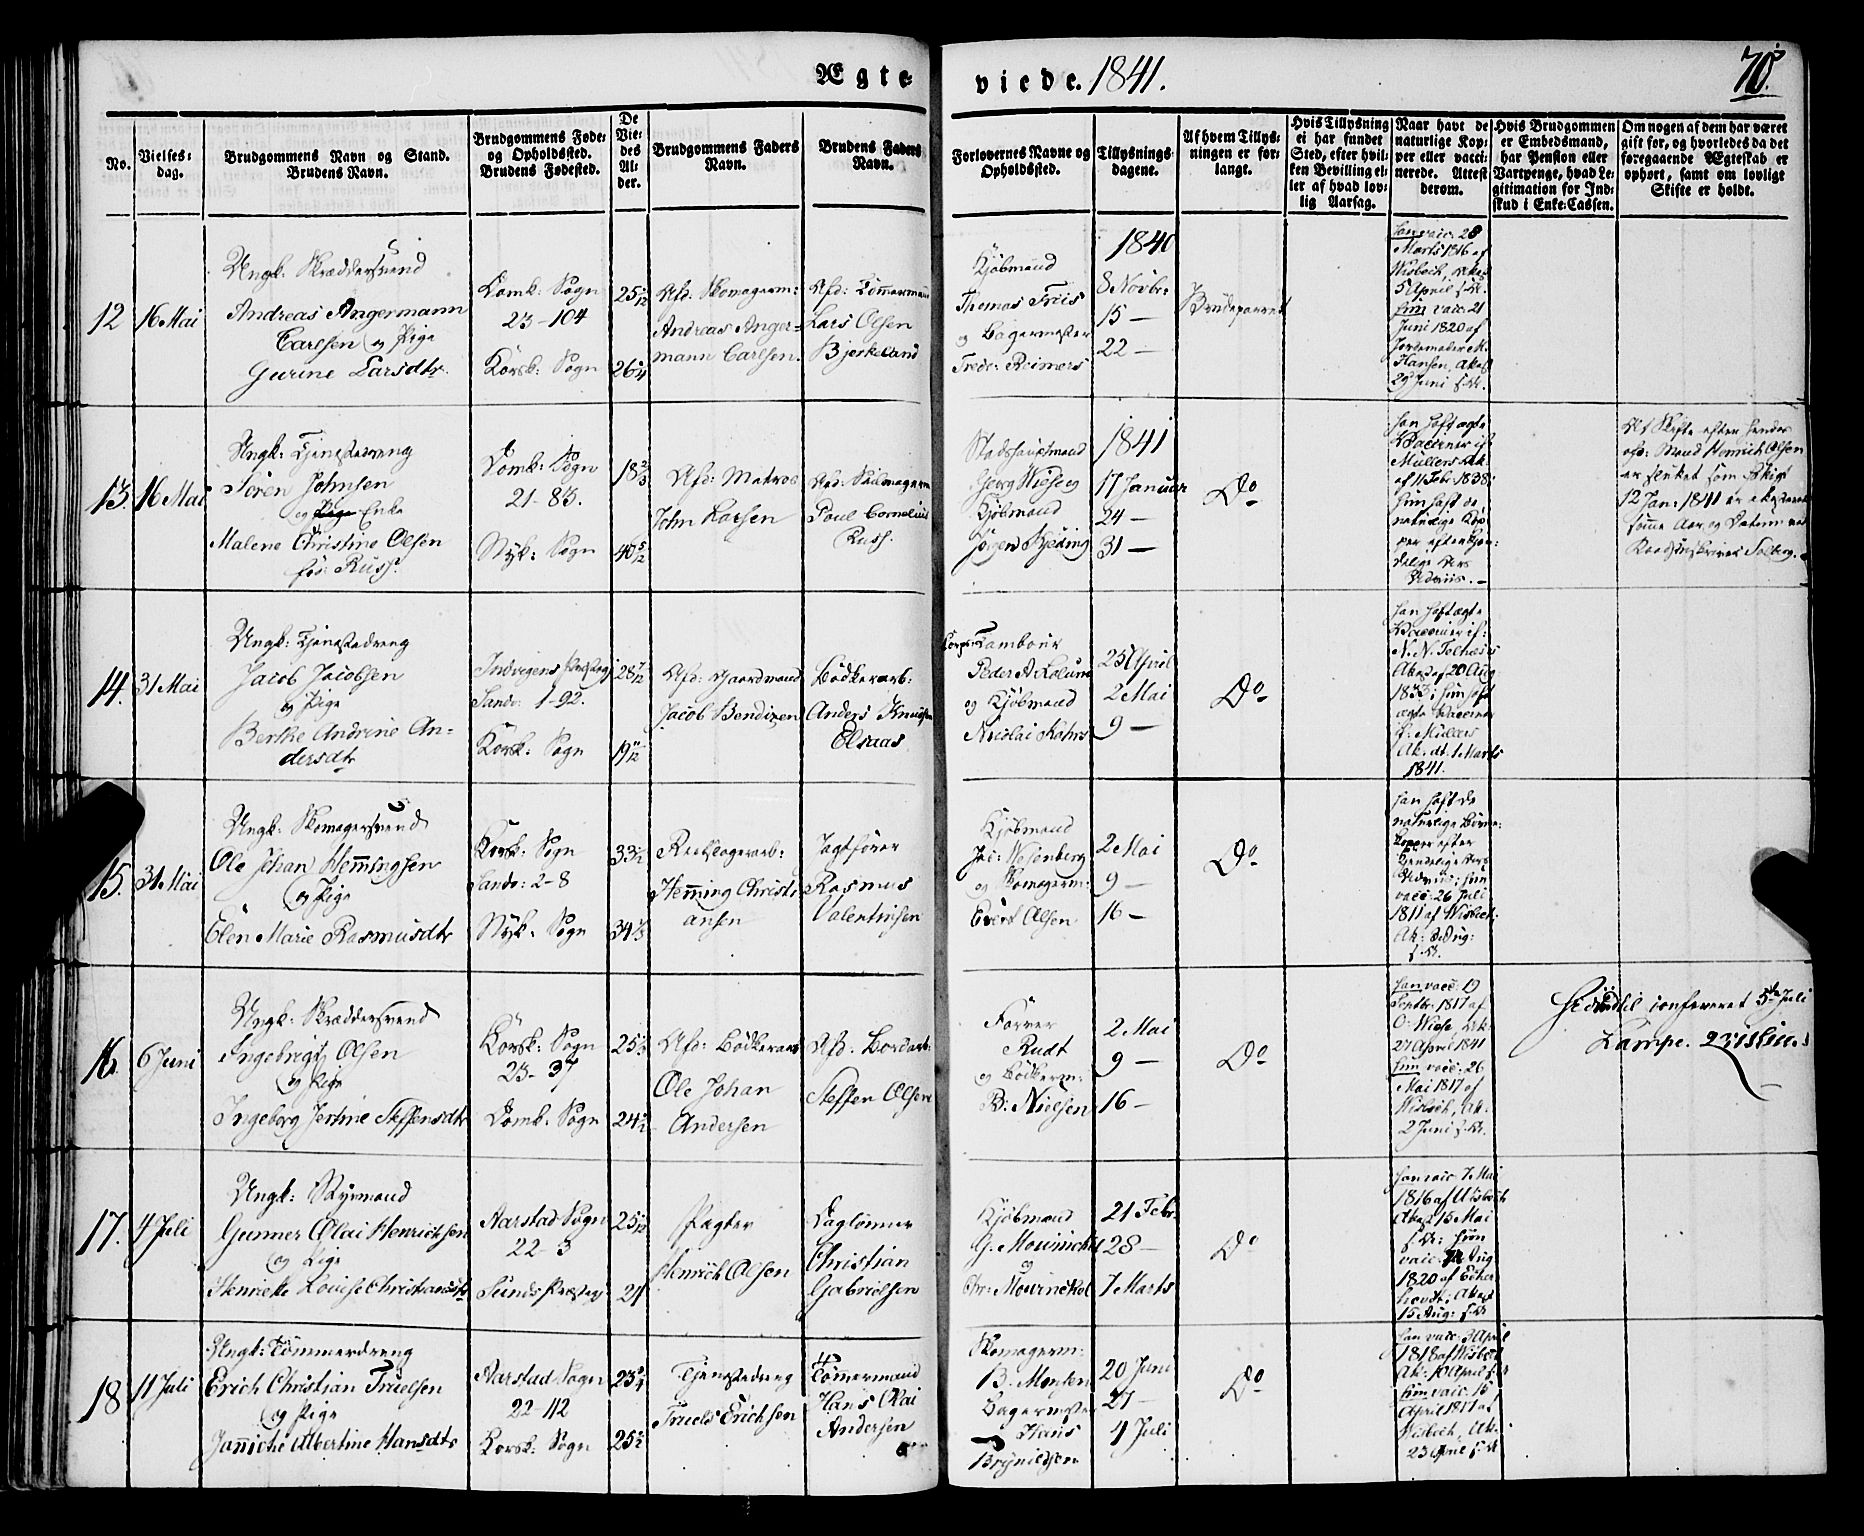 Ægte viede. 1841.
70.
No.
Vielses-
dag.
Brudgommens Navn og Stand.
Brudens Navn.
Brudgommens Føde-
og Opholdssted.
Brudens Fødested.
De
Vie-
des
Al-
der.
Brudgommens Faders
Navn.
Brudens Faders
Navn.
Forlovernes Navne og
Opholdssted.
Tillysnings-
dagene.
Af hvem Tillys-
ningen er for-
langt.
Hvis Tillysning
ei har fundet
Sted, efter hvil-
ken Bevilling el-
ler af hvad lov-
lig Aarsag.
Naar havt de
naturlige Kop-
per eller vacci-
nerede. Attest
derom.
Hvis Brudgommen
er Embedsmand,
har Pension eller
Vartpenge, hvad Le-
gitimation for Ind-
skud i Enke-Cassen.
Om nogen af dem har været
gift for, og hvorledes da det
foregaaende Ægteskab er
ophørt, samt om lovligt
Skifte er holdt.
12
16 Mai
Ungk: Skræddersvend
Andreas Angermann
Carlsen og Pige
Gurine Larsdtr.
Domk: Sogn
23-104
Korsk: Sogn
Afd: Skomagerm:
Andreas Anger-
mann Carlsen.
Afd: Tømmermand
Lars Olsen
Bjerkeland
Kjøbmand
Thomas Friis
og Bagermester
Fredr: Reimers
1840
8 Novbr.
15 —
22 —
Brudeparret
Han vacc: 28
Marts 1816 af
Wisbech, Attest
5 April s. A.
Hun vacc: 21
Juni 1820 af
Jordemoder M.
Hansen, Attest
29 Juni s. A.
13.
16 Mai
Ungk: Tjenestedreng
Søren Johnsen
og Enke
Malene Christine Olsen
fød Russ.
Domk: Sogn
21-83.
Nyk: Sogn
Afd: Matros
John Larsen
Afd: Seilmagerm
Poul Cornelius
Russ.
Stadshauptmand
Georg Wiese og
Kjøbmand
Jørgen Kjeding
1841
17 Januar
24 —
31 —
Do
Müllers At.
af 11 Febr. 1838;
hun haft de
naturlige Kop-
per
Skifte efter hendes
afd: Mand Henrich Olsen
12 Jan: 1841
14.
31 Mai
Ungk: Tjenestedreng
Jacob Jacobsen
og Pige
Berthe Andrine An-
dersdtr
Indvigens Præstegj
Sandv: 1-92.
Korsk: Sogn
Afd: Gaardmand
Jacob Bendixen
Bødkerarb:
Anders Knudsen
Elsaas
Korps-Tambour
Peder A. Kolund
og Kjøbmand
Nicolai Kohrs
25 April
2 Mai
9 —
Do
1 Marts
1841.
15.
31 Mai
Ungk: Skomagersvend
Ole Johan Hemmingsen
og Pige
Elen Marie Rasmusdtr
Korsk: Sogn
Sandv: 2-8
Nyk: Sogn
Reebslagerarb:
Hemming Christi-
ansen
Jagtfører
Rasmus
Valentinsen
Kjøbmand
Jac: Wesenberg
og Skomagerm:
Evert Olsen
2 Mai
9 —
16 —
Do
Han haft de
naturlige Børne-
kopper efter
vacc: 26 Juli
1811 af Wisbech:
16.
6 Juni
Ungk: Skræddersvend
Ingebrigt Olsen
og Pige
Ingeborg Jertine Steffensdtr
Korsk: Sogn
23-37
Domk: Sogn
Afd: Bødkerarb
Ole Johan
Andersen
Afd: Bordarb:
Steffen Olsen
Farver
Rudt
og Bødkerm:
B: Nielsen
2 Mai
9 —
16 —
Do
Han vacc: 19
Septbr: 1817 af
O: Wiese, At.
27 April 1841
Hun vacc: 26
Mai 1817 af
Wisbech, At:
2 Juni s. A.
Hidindtil confereret 5te Juli
17.
4 Juli
Ungk: Styrmand
Gunner Olai Henrichsen
og Pige
Henriette Louise Christiansdtr
Aarstad Sogn
22-3
Sunds Præstegj
21
Pagter
Henrich Olsen
Daglønner
Christian
Gabrielsen
Kjøbmand
G. Mowinckel
og
Chr: Mowinckel
21 Febr.
28 —
7 Marts
Do
Han vacc: 7 Mai
1816 af Wisbech
Attest 15 Mai
s. A: Hun
1820 af
15 Aug: s. A
18
11 Juli
Ungk: Tømmerdreng
Erich Christian Truelsen
og Pige
Janniche Albertine Hansdtr
Aarstad Sogn
22-112
Korsk: Sogn
Tjenestedreng
Truels Erichsen
Tømmermand
Hans Olai
Andersen
Skomagerm:
B. Monsen
Bagermester
Hans
Brynildsen
20 Juni
27 —
4 Juli
Do
Han vacc: 3 April
1818 af Wisbech
At: 10 April s. A
Hun vacc: 15
April 1817 af
Wisbech, At:
23 April s. A